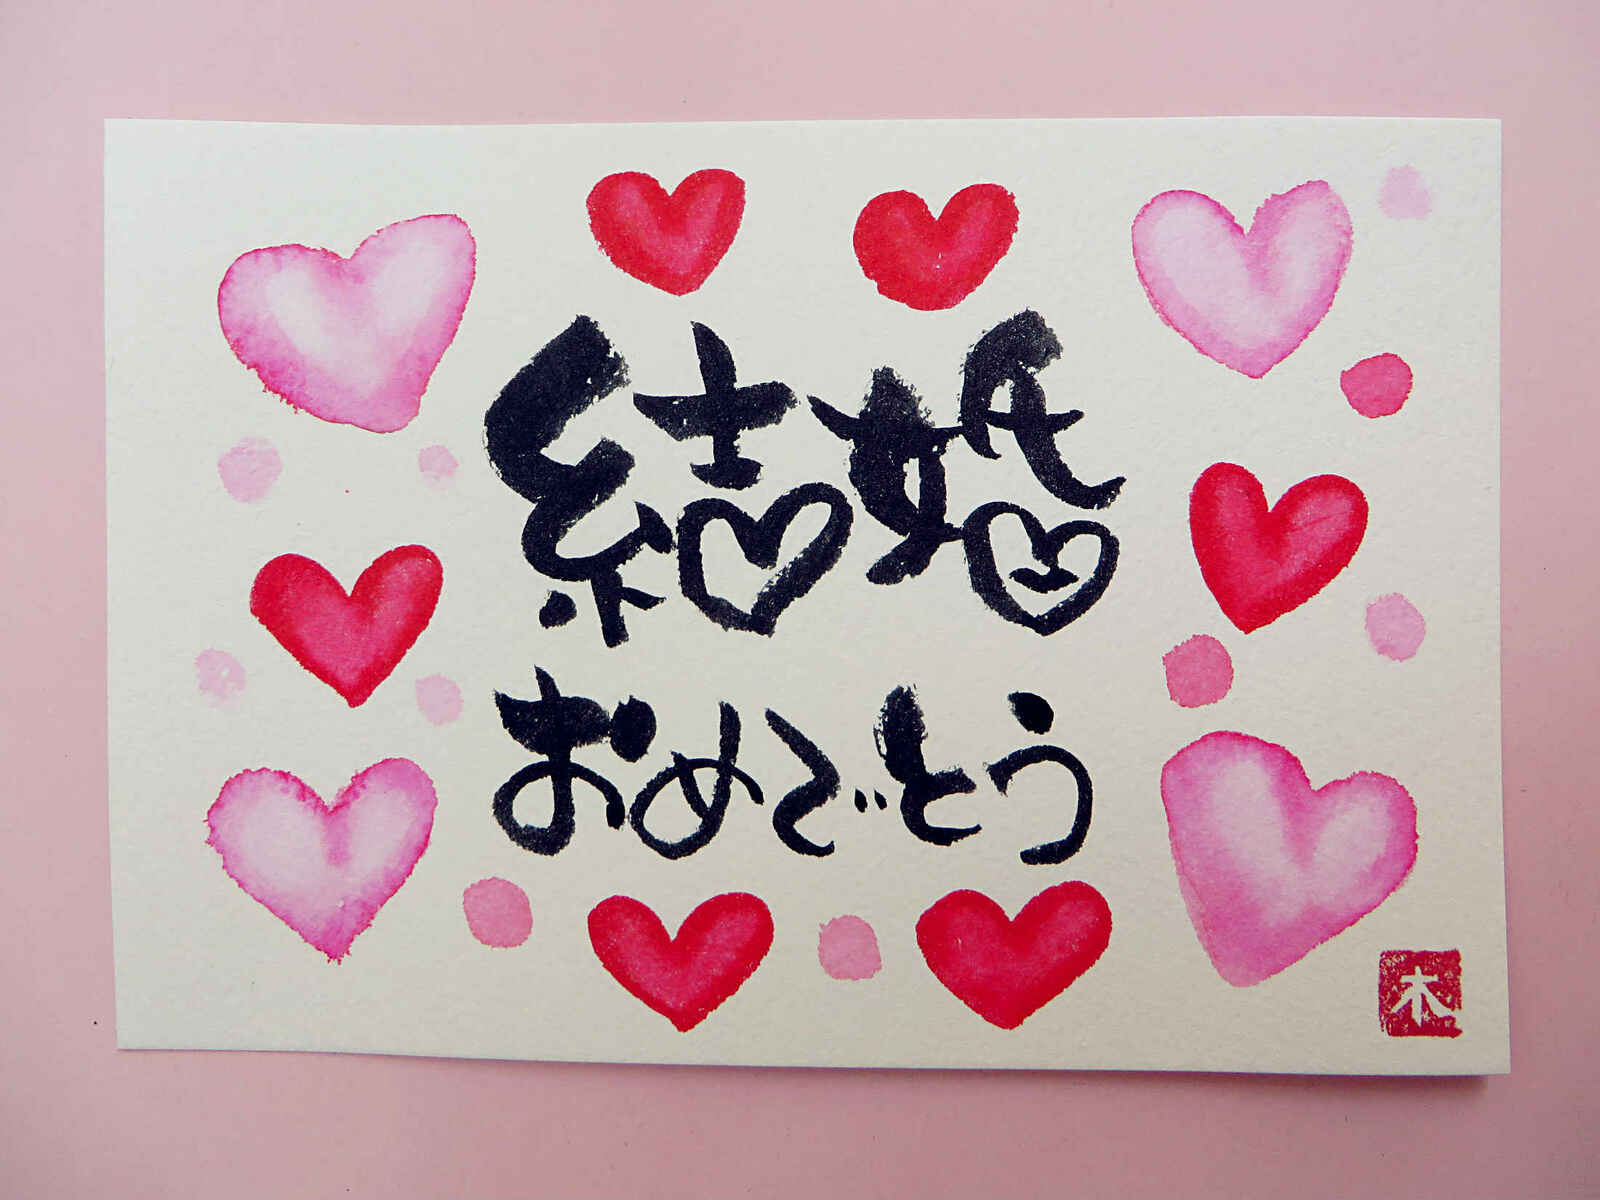 結婚
おめでとう
木